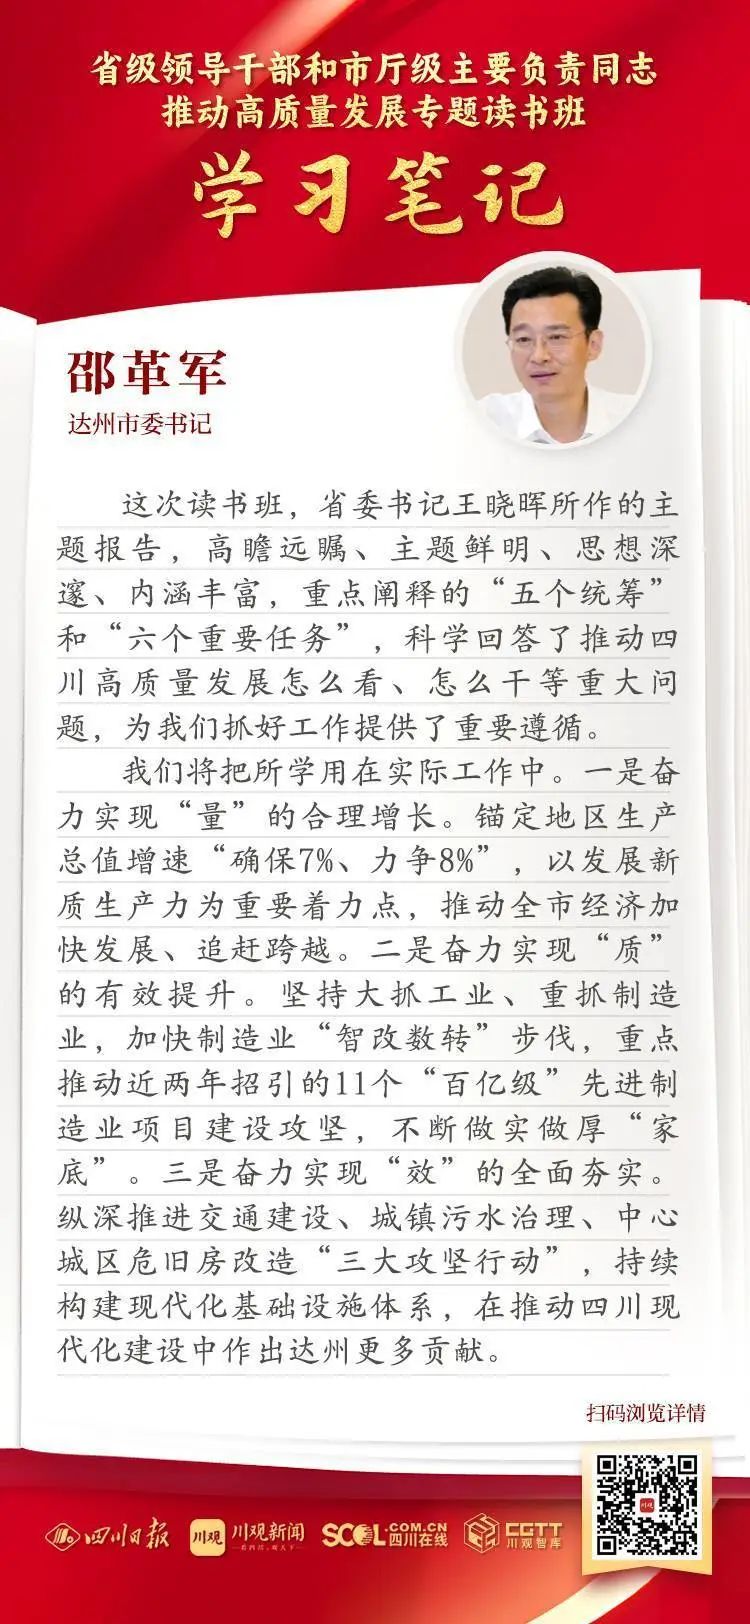 省级领导干部和市厅级主要负责同志
推动高质量发展专题读书班
学习笔记
邵革军
达州市委书记
这次读书班，省委书记王晓晖所作的主
题报告，高瞻远瞩、主题鲜明、思想深
邃、内涵丰富，重点阐释的“五个统筹”
和“六个重要任务”，科学回答了推动四
川高质量发展怎么看、怎么干等重大问
题，为我们抓好工作提供了重要遵循。
我们将把所学用在实际工作中。一是奋
力实现“量”的合理增长。锚定地区生产
总值增速“确保7%、力争8%”，以发展新
质生产力为重要着力点，推动全市经济加
快发展、追赶跨越。二是奋力实现“质”
的有效提升。坚持大抓工业、重抓制造
业，加快制造业“智改数转”步伐，重点
推动近两年招引的11个“百亿级”先进制
造业项目建设攻坚，不断做实做厚“家
底”。三是奋力实现“效”的全面夯实。
纵深推进交通建设、城镇污水治理、中心
城区危旧房改造“三大攻坚行动”，持续
构建现代化基础设施体系，在推动四川现
代化建设中作出达州更多贡献。
扫码浏览详情
川观
四川日报
川观
川观新闻
SCOL.COM.CN
四川在线
CGTT
川观智库